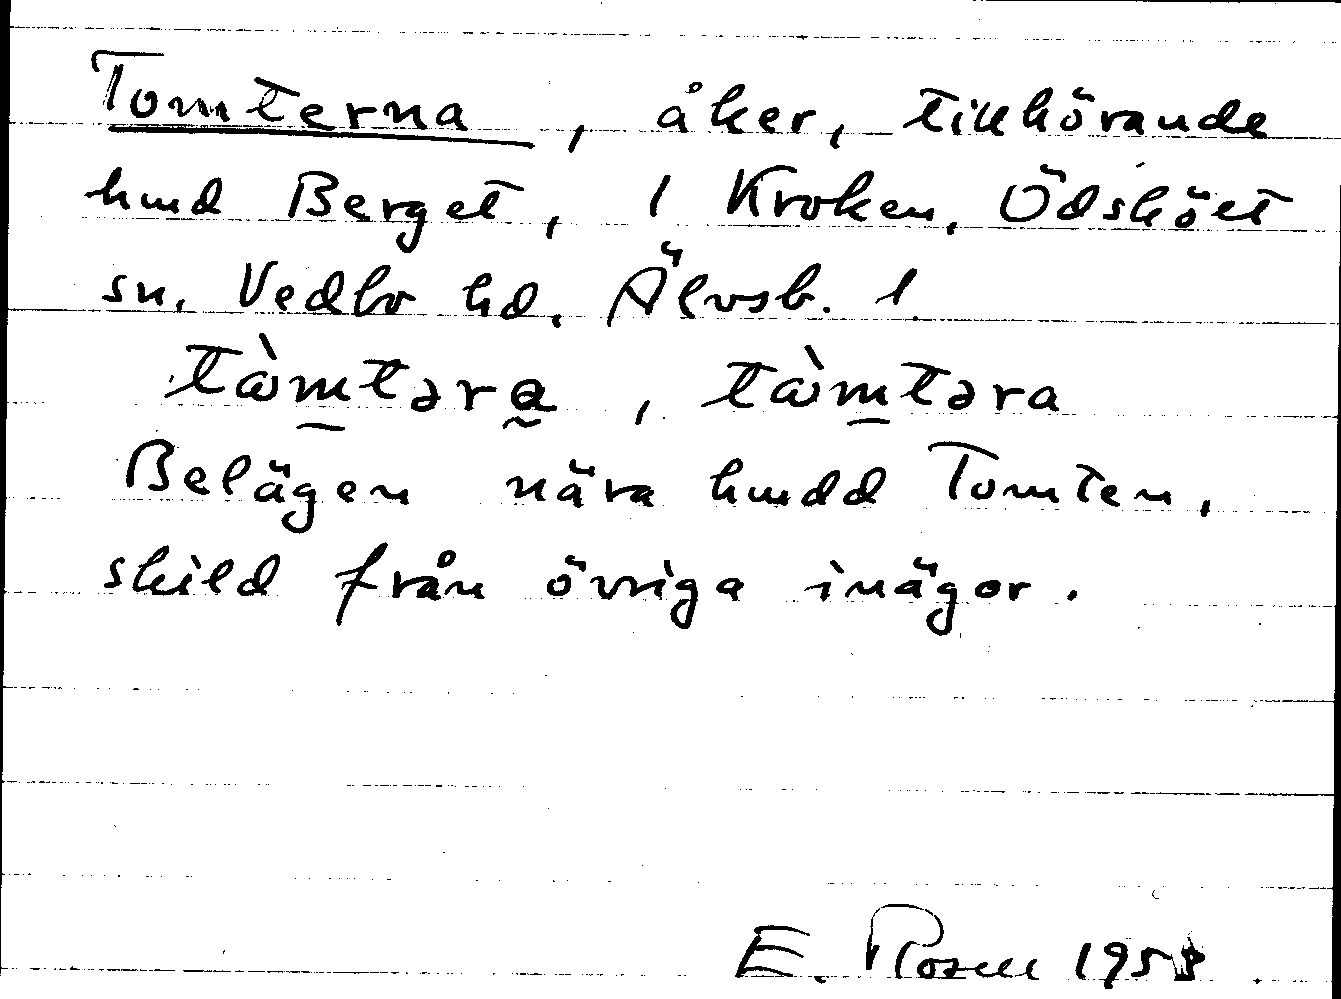 Tomterna, åker, tillhörande
hmd Berget, 1 Kroken, Ödskölt
sn. Vedbo hd. Älvsb. l.
tàmtəra, tàmtəra
Belägen nära hmdd Tomten,
skild från övriga inägor.
E. Rosell